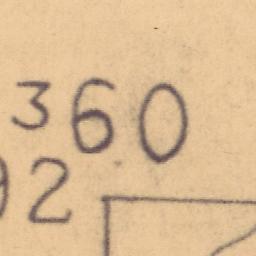 360
92